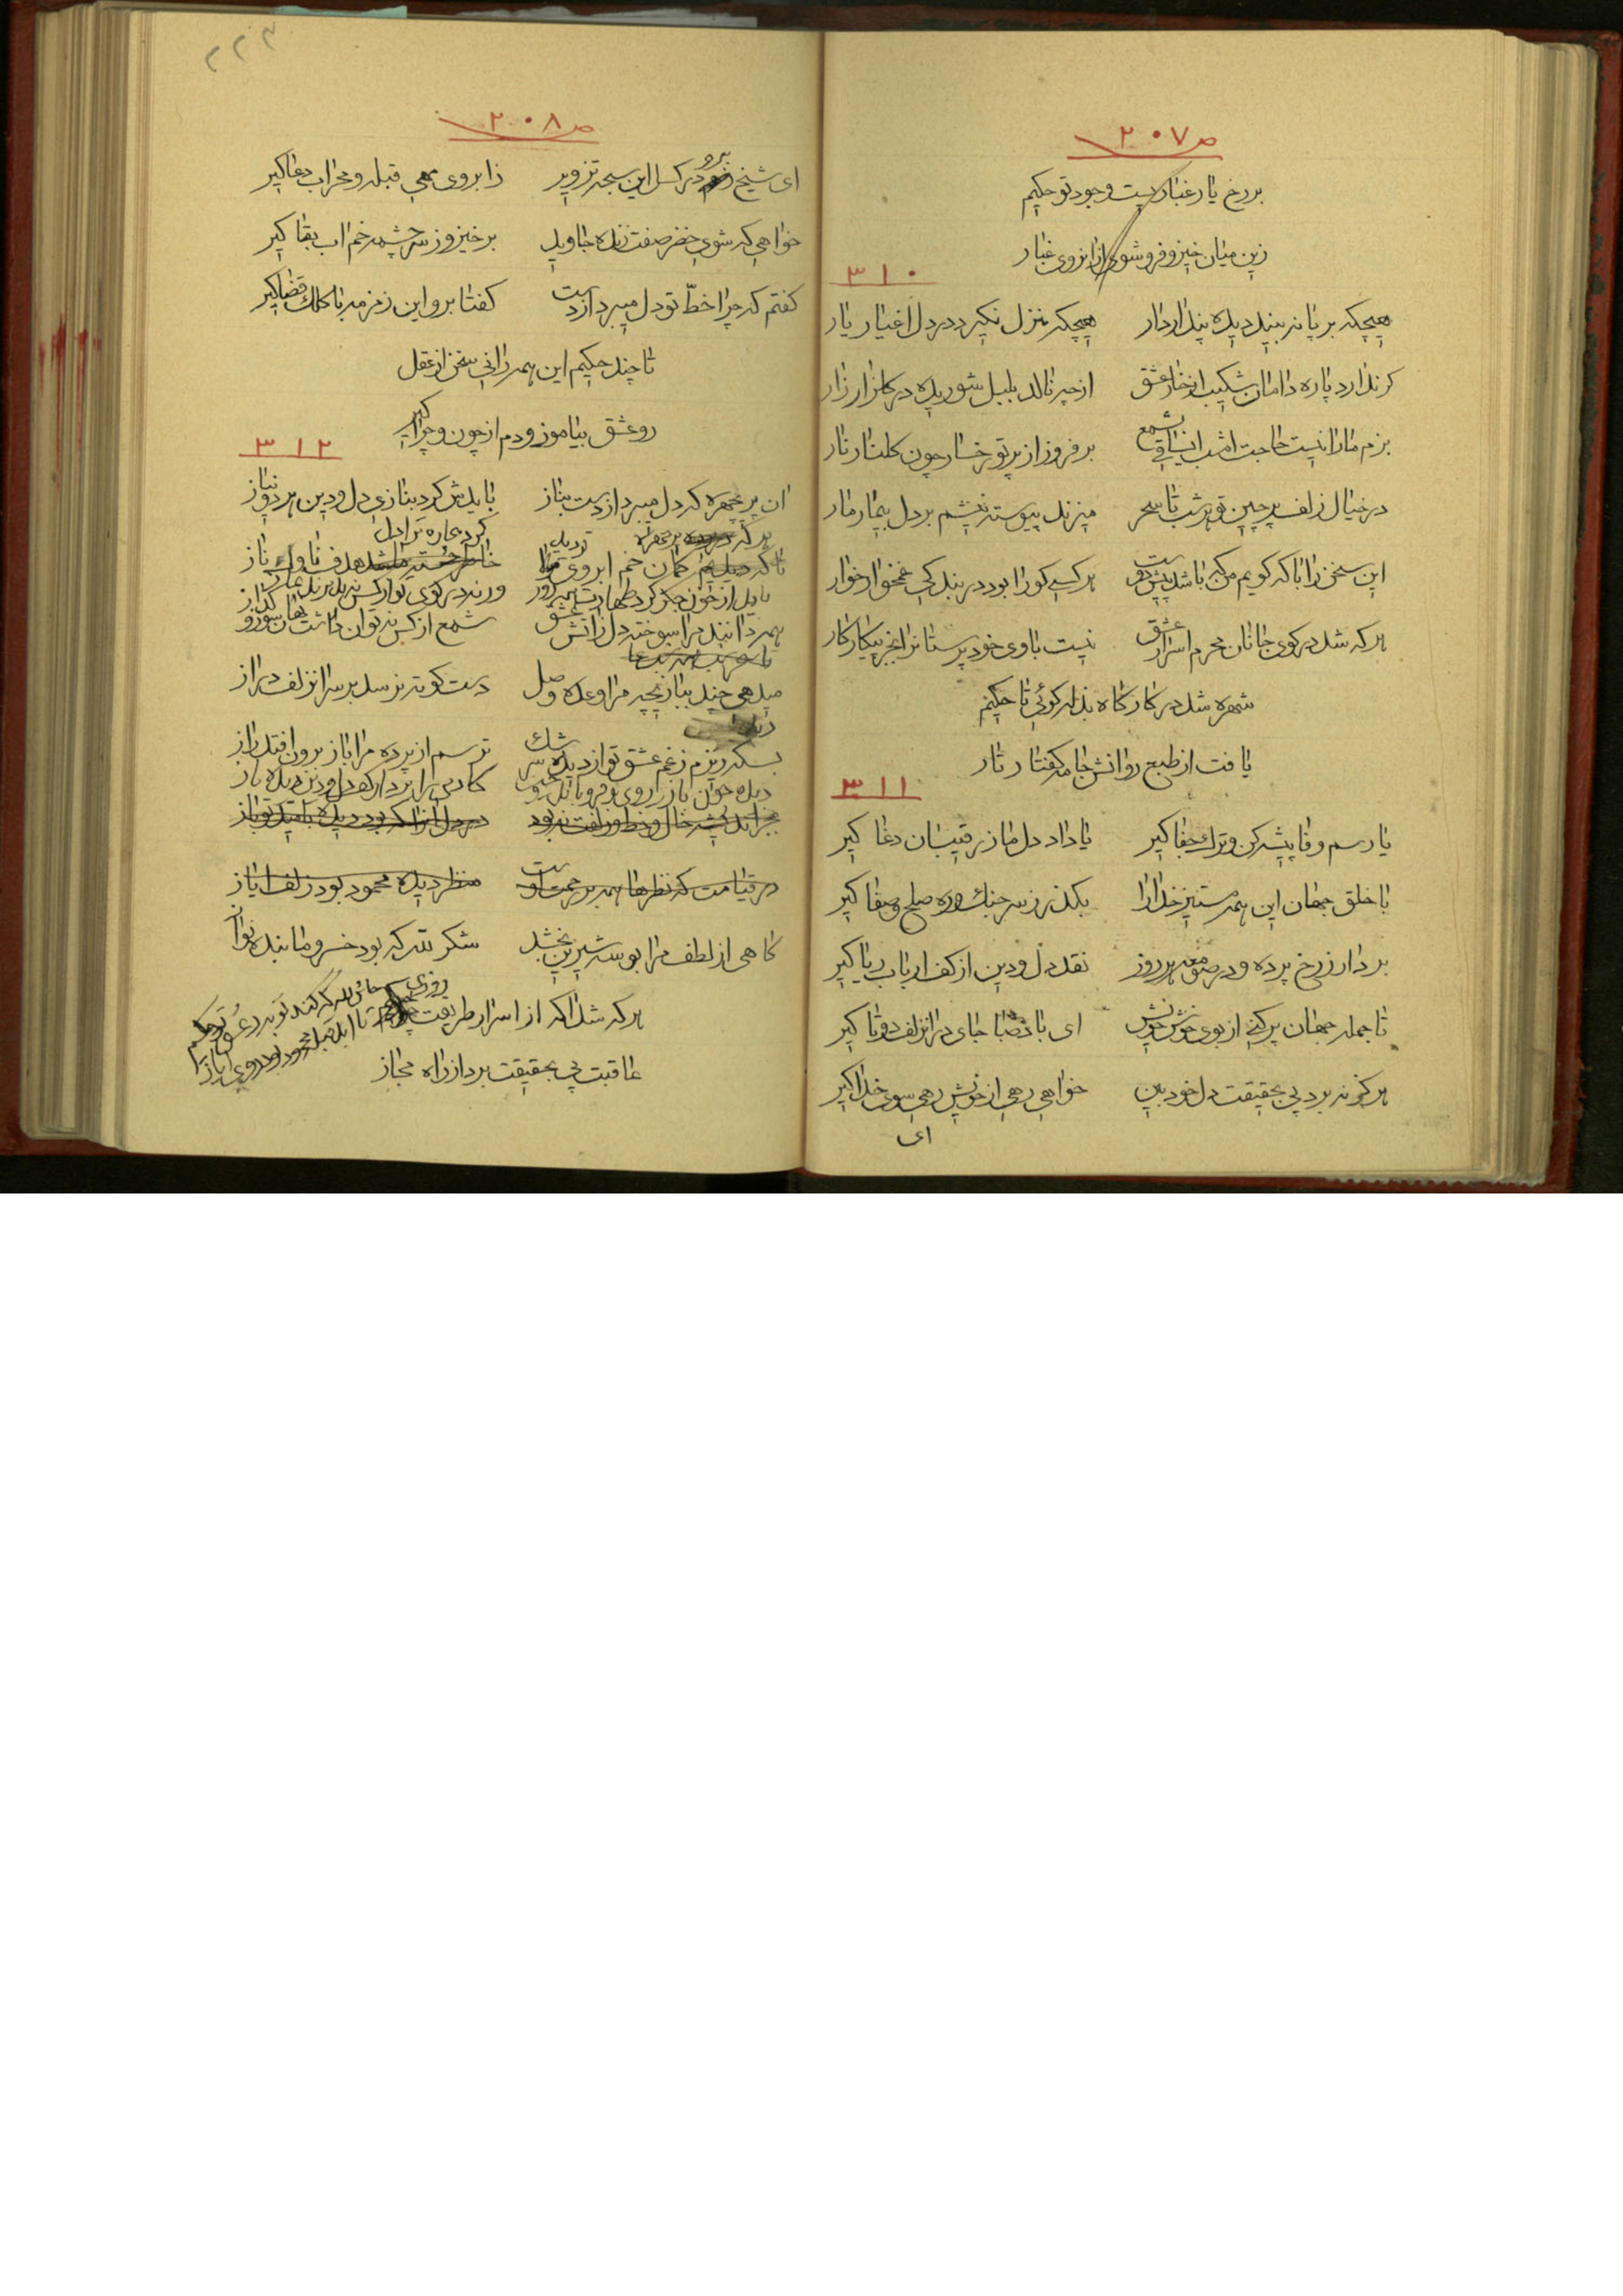 ص ٢٠٧
بر رخ یار غبار یست وجود تو حکیم
زین میان خیز و فرو شوی از انروی غبار
٣١٠
هیچکه بر پا نه بیند دیده پندار دار
هیچکه منزل نکیرد در دل اغیار یار
کر ندارد پاره دامان شکیب از خار عشق
از چه نالد بلبل شوریده در کلزار زار
بزم ما را نیست حاجت امشب ایساقی بشمع
بر فروز از پرتو رخسار چون کلنار نار
در خیال زلف پر چین تو هر شب تا سحر
میزند پیوسته نیشم بر دل بیمار مار
این سخن را با که کویم من که باشد پیش دوست
هر کسی کو را بود در بند کی غمخوار خوار
هر که شد در کوی جانان محرم اسرار عشق
نیست با وی خود پرستانرا بجز پیکار کار
شهره شد در کار کاه بذله کوئی تا حکیم
یافت از طبع روانش جامه کفتار تار
٣١١
یا رسم وفا پیشه کن و ترک جفا کیر
یا داد دل ما ز رقیبان دغا کیر
با خلق جهان این همه مستیز خدا را
بکذر ز سر جنک و ره صلح و صفا کیر
بردار ز رخ پرده و در صومعه هر روز
نقد دل و دین از کف ارباب ریا کیر
تا جمله جهان پر کنی از بوی خوش خویش
ای باد صبا جای در انزلف دوتا کیر
هرکز نه برد پی بحقیقت دل خود بین
خواهی رهی از خویش رهی سوی خدا کیر
ای
٢٢٣
ص ٢٠٨
ای شیخ برو در کسل این سبحه تزویر
ز ابروی مهی قبله و محراب دعا کیر
خواهی که شوی خضر صفت زنده جاوید
برخیز و ز سر چشمه خم اب بقا کیر
کفتم که چرا خط تو دل میبرد از دست
کفتا برو این زمزمه با کلک قضا کیر
تا چند حکیم این همه رانی سخن از عقل
رو عشق بیاموز و دم از چون و چرا کیر
٣١٢
ان پریچهره که دل میبرد از دست بناز
باید ش کرد بنازی دل و دین هر دو نیاز
هر که
کرد بیچاره ترا دل
کمان خم ابروی ترا
هدف ناوک ناز
باید از خون جکر کرد طهارت
ورنه در کوی تو از کس نه پذیرند نماز
همه دانند مرا سوخته دل ز اتش عشق
شمع از کس نه توان داشت نهان سوز و کداز
میدهی چند ببازیچه مرا وعده وصل
دست کوته نرسد بر سر انزلف دراز
بسکه ریزم ز غم عشق تو از دیده سرشک
ترسم از پرده مرا باز برون افتد راز
جز
خال و خط و زلفت نبود
در دل انرا که بود دیده بامید تو باز
در قیامت که نظرها همه بر رحمت اوست
منظر دیده محمود بود زلف ایاز
کاهی از لطف مرا بوسه شیرین بخشد
شکر لله که بود خسرو ما بنده نواز
هر که شد اکه از اسرار طریقت چو حکیم
عاقبت پی بحقیقت برد از راه مجاز
حاش لله که کند توبه ز عشق تو حکیم
تا ابد قبله محمود بود روی ایاز